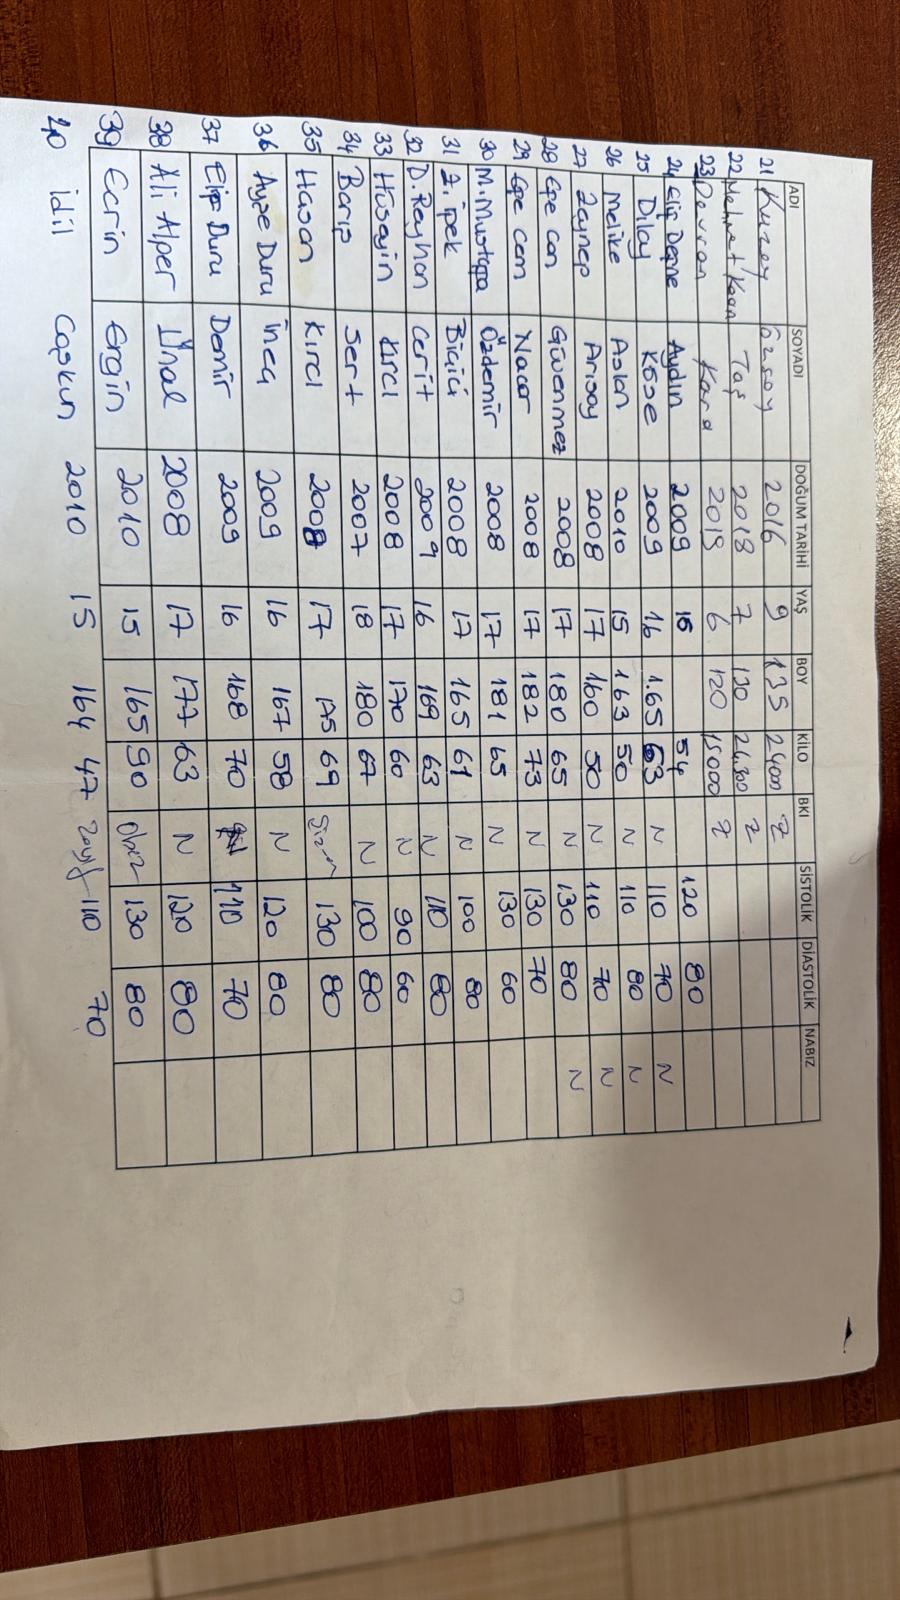 ADI SOYADI DOĞUM TARİHİ YAŞ BOY KİLO BKI SİSTOLİK DİASTOLİK NABIZ
21 Kuzey Özsoy 2016 9 135 24000 Z
22 Mehmet Kaan Taş 2018 7 130 24.300 Z
23 Devran Kara 2019 6 120 15000 Z
24 Elif Define Aydın 2009 16 54 120 80
25 Dilay Köse 2009 16 1.65 63 N 110 70 N
26 Melike Aslan 2010 15 163 50 N 110 80 N
27 Zeynep Arısoy 2008 17 160 50 N 110 70 N
28 Ege can Güvenmez 2008 17 180 65 N 130 80 N
29 Ege cem Nacar 2008 17 182 73 N 130 70
30 M.Mustafa Özdemir 2008 17 181 65 N 130 60
31 Z. ipek Biçici 2008 17 165 61 N 100 80
32 D. Reyhan Cerit 2009 16 169 63 N 110 80
33 Hüseyin Kırcı 2008 17 170 60 N 90 60
34 Barış Sert 2007 18 180 67 N 100 80
35 Hasan Kırcı 2008 17 175 69 130 80
36 Ayşe Duru İnce 2009 16 167 58 N 120 80
37 Elif Duru Demir 2009 16 168 70 110 70
38 Ali Alper Ünal 2008 17 177 63 N 120 80
39 Ecrin Ergin 2010 15 165 90 Obez 130 80
40 İdil Coşkun 2010 15 164 47 Zayıf 110 70